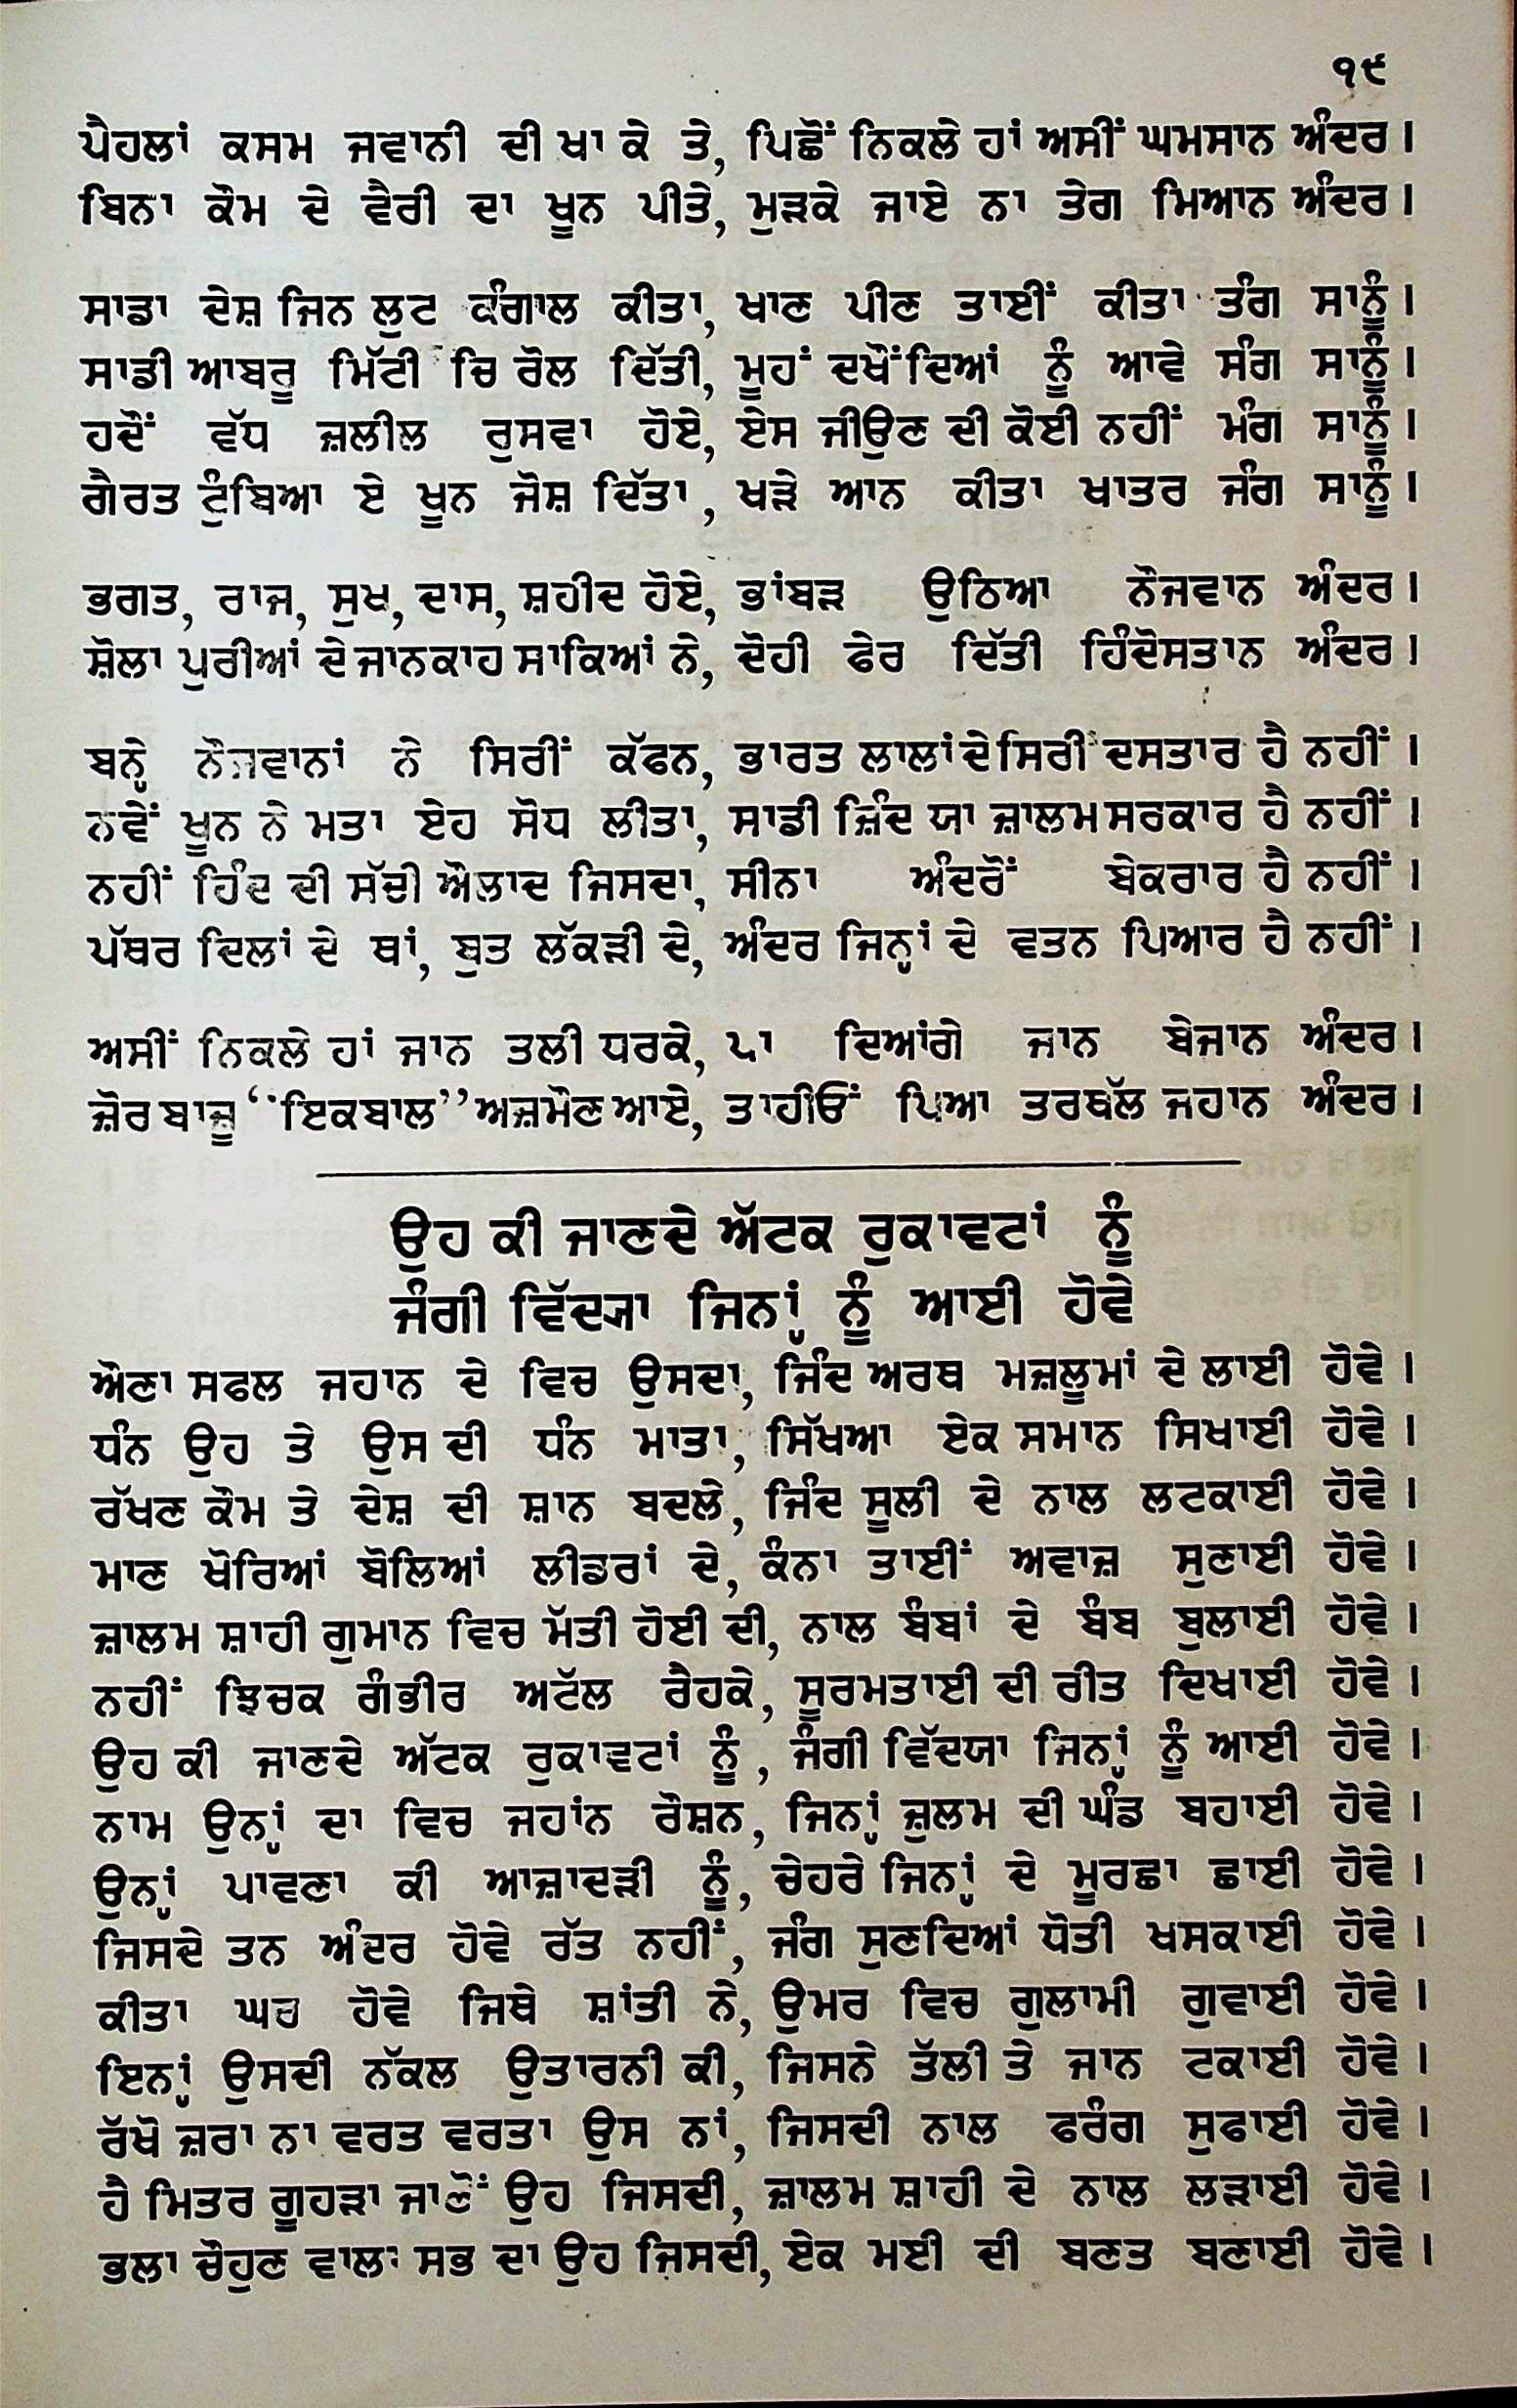 ੧੯
ਪੈਹਲਾਂ ਕਸਮ ਜਵਾਨੀ ਦੀ ਖਾ ਕੇ ਤੇ, ਪਿਛੋਂ ਨਿਕਲੇ ਹਾਂ ਅਸੀਂ ਘਮਸਾਨ ਅੰਦਰ।
ਬਿਨਾ ਕੌਮ ਦੇ ਵੈਰੀ ਦਾ ਖੂਨ ਪੀਤੇ, ਮੁੜਕੇ ਜਾਏ ਨਾ ਤੇਗ ਮਿਆਨ ਅੰਦਰ।
ਸਾਡਾ ਦੇਸ਼ ਜਿਨ ਲੁਟ ਕੰਗਾਲ ਕੀਤਾ, ਖਾਣ ਪੀਣ ਤਾਈਂ ਕੀਤਾ ਤੰਗ ਸਾਨੂੰ।
ਸਾਡੀ ਆਬਰੂ ਮਿੱਟੀ ਚਿ ਰੋਲ ਦਿੱਤੀ, ਮੂਹਂ ਦਖੌਂਦਿਆਂ ਨੂੰ ਆਵੇ ਸੰਗ ਸਾਨੂੰ।
ਹਦੌਂ ਵੱਧ ਜ਼ਲੀਲ ਰੁਸਵਾ ਹੋਏ, ਏਸ ਜੀਉਣ ਦੀ ਕੋਈ ਨਹੀਂ ਮੰਗ ਸਾਨੂੰ।
ਗੈਰਤ ਟੁੰਬਿਆ ਏ ਖੂਨ ਜੋਸ਼ ਦਿੱਤਾ, ਖੜੇ ਆਨ ਕੀਤਾ ਖਾਤਰ ਜੰਗ ਸਾਨੂੰ।
ਭਗਤ, ਰਾਜ, ਸੁਖ, ਦਾਸ, ਸ਼ਹੀਦ ਹੋਏ, ਭਾਂਬੜ ਉਠਿਆ ਨੌਜਵਾਨ ਅੰਦਰ।
ਸ਼ੋਲਾ ਪੁਰੀਆਂ ਦੇ ਜਾਨਕਾਹ ਸਾਕਿਆਂ ਨੇ, ਦੋਹੀ ਫੇਰ ਦਿੱਤੀ ਹਿੰਦੋਸਤਾਨ ਅੰਦਰ।
ਬਨ੍ਹੇ ਨੌਜਵਾਨਾਂ ਨੇ ਸਿਰੀਂ ਕੱਫਨ, ਭਾਰਤ ਲਾਲਾਂ ਦੇ ਸਿਰੀਂ ਦਸਤਾਰ ਹੈ ਨਹੀਂ।
ਨਵੇਂ ਖੂਨ ਨੇ ਮਤਾ ਏਹ ਸੋਧ ਲੀਤਾ, ਸਾਡੀ ਜ਼ਿੰਦ ਯਾ ਜ਼ਾਲਮ ਸਰਕਾਰ ਹੈ ਨਹੀਂ।
ਨਹੀਂ ਹਿੰਦ ਦੀ ਸੱਚੀ ਔਲਾਦ ਜਿਸਦਾ, ਸੀਨਾ ਅੰਦਰੋਂ ਬੇਕਰਾਰ ਹੈ ਨਹੀਂ।
ਪੱਥਰ ਦਿਲਾਂ ਦੇ ਥਾਂ, ਬੁਤ ਲੱਕੜੀ ਦੇ, ਅੰਦਰ ਜਿਨ੍ਹਾਂ ਦੇ ਵਤਨ ਪਿਆਰ ਹੈ ਨਹੀਂ।
ਅਸੀਂ ਨਿਕਲੇ ਹਾਂ ਜਾਨ ਤਲੀ ਧਰਕੇ, ਪਾ ਦਿਆਂਗੇ ਜਾਨ ਬੇਜਾਨ ਅੰਦਰ।
ਜ਼ੋਰ ਬਾਜ਼ੂ "ਇਕਬਾਲ" ਅਜ਼ਮੌਣ ਆਏ, ਤਾਹੀਓਂ ਪਿਆ ਤਰਥੱਲ ਜਹਾਨ ਅੰਦਰ।
ਉਹ ਕੀ ਜਾਣਦੇ ਅੱਟਕ ਰੁਕਾਵਟਾਂ ਨੂੰ
ਜੰਗੀ ਵਿੱਦਯਾ ਜਿਨ੍ਹਾਂ ਨੂੰ ਆਈ ਹੋਵੇ
ਔਣਾ ਸਫਲ ਜਹਾਨ ਦੇ ਵਿਚ ਉਸਦਾ, ਜਿੰਦ ਅਰਥ ਮਜ਼ਲੂਮਾਂ ਦੇ ਲਾਈ ਹੋਵੇ।
ਧੰਨ ਉਹ ਤੇ ਉਸ ਦੀ ਧੰਨ ਮਾਤਾ, ਸਿੱਖਿਆ ਏਕ ਸਮਾਨ ਸਿਖਾਈ ਹੋਵੇ।
ਰੱਖਣ ਕੌਮ ਤੇ ਦੇਸ਼ ਦੀ ਸ਼ਾਨ ਬਦਲੇ, ਜਿੰਦ ਸੂਲੀ ਦੇ ਨਾਲ ਲਟਕਾਈ ਹੋਵੇ।
ਮਾਣ ਖੋਰਿਆਂ ਬੋਲਿਆਂ ਲੀਡਰਾਂ ਦੇ, ਕੰਨਾ ਤਾਈਂ ਅਵਾਜ਼ ਸੁਣਾਈ ਹੋਵੇ।
ਜ਼ਾਲਮ ਸ਼ਾਹੀ ਗੁਮਾਨ ਵਿਚ ਮੱਤੀ ਹੋਈ ਦੀ, ਨਾਲ ਬੰਬਾਂ ਦੇ ਬੰਬ ਬੁਲਾਈ ਹੋਵੇ।
ਨਹੀਂ ਝਿਚਕ ਗੰਭੀਰ ਅਟੱਲ ਰੈਹਕੇ, ਸੂਰਮਤਾਈ ਦੀ ਰੀਤ ਦਿਖਾਈ ਹੋਵੇ।
ਉਹ ਕੀ ਜਾਣਦੇ ਅੱਟਕ ਰੁਕਾਵਟਾਂ ਨੂੰ, ਜੰਗੀ ਵਿੱਦਯਾ ਜਿਨ੍ਹਾਂ ਨੂੰ ਆਈ ਹੋਵੇ।
ਨਾਮ ਉਨ੍ਹਾਂ ਦਾ ਵਿਚ ਜਹਾਂਨ ਰੌਸ਼ਨ, ਜਿਨ੍ਹਾਂ ਜ਼ੁਲਮ ਦੀ ਘੰਡ ਬਹਾਈ ਹੋਵੇ।
ਉਨ੍ਹਾਂ ਪਾਵਣਾ ਕੀ ਆਜ਼ਾਦੜੀ ਨੂੰ, ਚੇਹਰੇ ਜਿਨ੍ਹਾਂ ਦੇ ਮੂਰਛਾ ਛਾਈ ਹੋਵੇ।
ਜਿਸਦੇ ਤਨ ਅੰਦਰ ਹੋਵੇ ਰੱਤ ਨਹੀਂ, ਜੰਗ ਸੁਣਦਿਆਂ ਧੋਤੀ ਖਸਕਾਈ ਹੋਵੇ।
ਕੀਤਾ ਘਰ ਹੋਵੇ ਜਿਥੇ ਸ਼ਾਂਤੀ ਨੇ, ਉਮਰ ਵਿਚ ਗੁਲਾਮੀ ਗੁਵਾਈ ਹੋਵੇ।
ਇਨ੍ਹਾਂ ਉਸਦੀ ਨੱਕਲ ਉਤਾਰਨੀ ਕੀ, ਜਿਸਨੇ ਤੱਲੀ ਤੇ ਜਾਨ ਟਕਾਈ ਹੋਵੇ।
ਰੱਖੋ ਜ਼ਰਾ ਨਾ ਵਰਤ ਵਰਤਾ ਉਸ ਨਾਂ, ਜਿਸਦੀ ਨਾਲ ਫਰੰਗ ਸੁਫਾਈ ਹੋਵੇ।
ਹੈ ਮਿਤਰ ਗੂਹੜਾ ਜਾਣੋਂ ਉਹ ਜਿਸਦੀ, ਜ਼ਾਲਮ ਸ਼ਾਹੀ ਦੇ ਨਾਲ ਲੜਾਈ ਹੋਵੇ।
ਭਲਾ ਚੌਹੁਣ ਵਾਲਾ ਸਭ ਦਾ ਉਹ ਜਿਸਦੀ, ਏਕ ਮਈ ਦੀ ਬਣਤ ਬਣਾਈ ਹੋਵੇ।